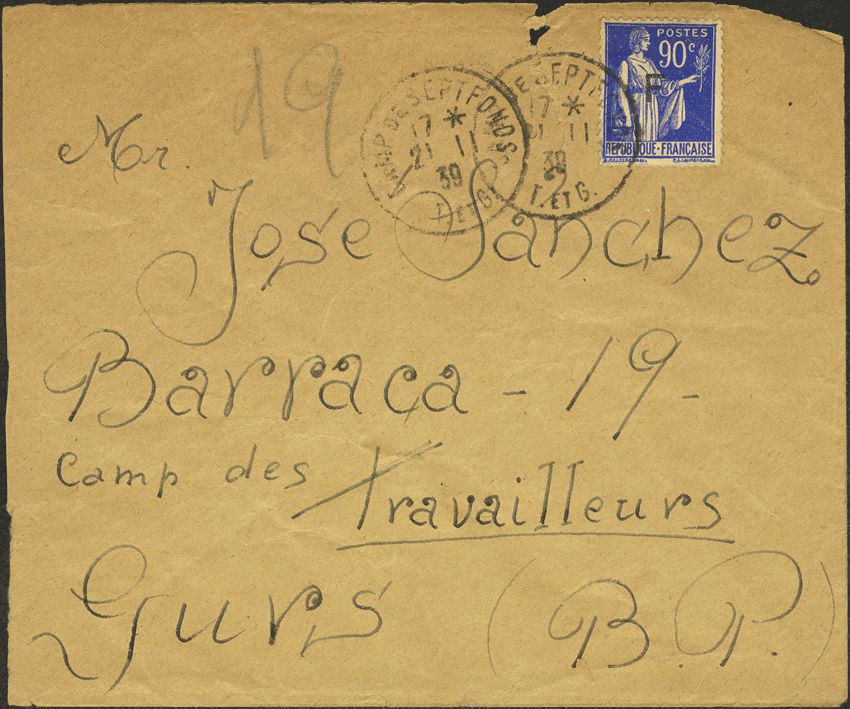 19
CAMP DE SEPTFONDS
17 *
21 11
39
T. ET G.
E SEPTF
17 *
21 11
39
T. ET G.
POSTES
90c
F
REPUBLIQUE·FRANÇAISE
Mr.
Jose Sanchez
Barraca - 19 -
Camp des Travailleurs
Gurs (B.P.)